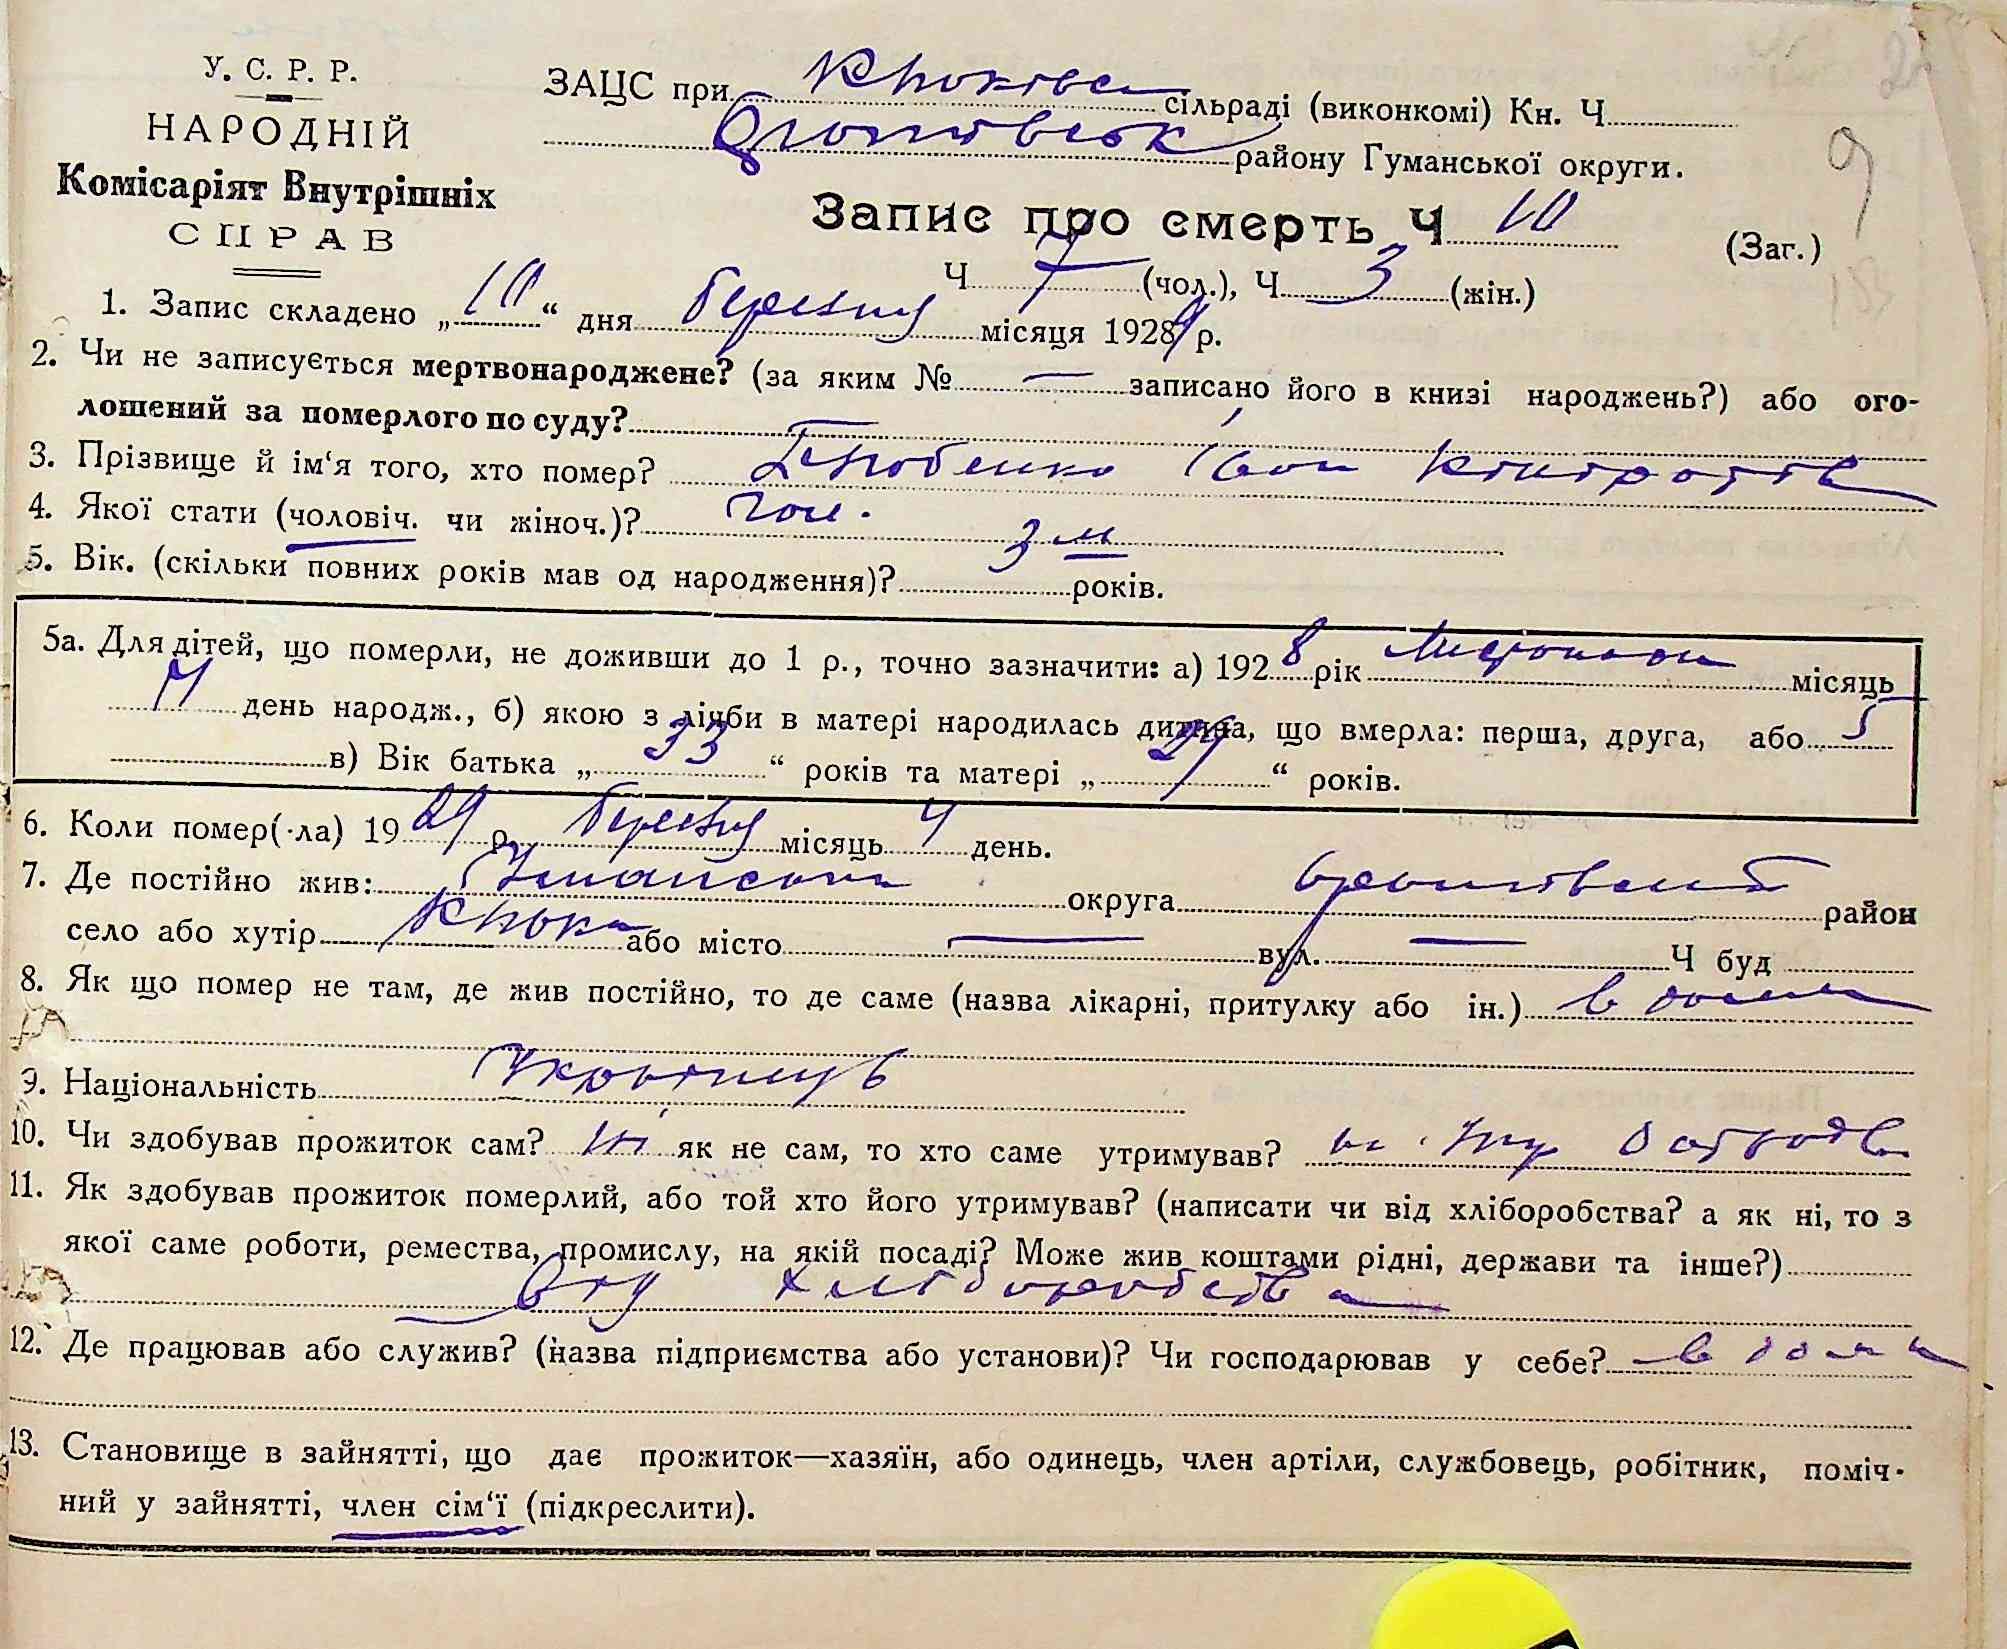 У. С. Р. Р.
НАРОДНІЙ
Комісаріят Внутрішніх
СПРАВ
ЗАЦС при сільраді (виконкомі) Кн. Ч.
району Гуманської округи.
9
Запис про смерть Ч 10 (Заг.)
Ч 7 (чол.), Ч 3 (жін.)
1. Запис складено „10“ дня березня місяця 19289 р.
2. Чи не записується мертвонароджене? (за яким № — записано його в книзі народжень?) або ого-
лошений за померлого по суду? —
3. Прізвище й ім‘я того, хто помер? Іван
4. Якої стати (чоловіч. чи жіноч.)? чол.
5. Вік. (скільки повних років мав од народження)? 3 м років.
5а. Для дітей, що померли, не доживши до 1 р., точно зазначити: а) 1928 рік Листопад місяць
день народж., б) якою з ліяби в матері народилась дитина, що вмерла: перша, друга, або 5
в) Вік батька „33“ років та матері „29“ років.
6. Коли помер(·ла) 1929 р. березня місяць 4 день.
7. Де постійно жив: Уманська округа район
село або хутір або місто — вул. — Ч буд
8. Як що помер не там, де жив постійно, то де саме (назва лікарні, притулку або ін.) в дома
9. Національність Українець
10. Чи здобував прожиток сам? ні як не сам, то хто саме утримував?
11. Як здобував прожиток померлий, або той хто його утримував? (написати чи від хліборобства? а як ні, то з
якої саме роботи, ремества, промислу, на якій посаді? Може жив коштами рідні, держави та інше?)
від хліборобства
12. Де працював або служив? (назва підприємства або установи)? Чи господарював у себе? в дома
13. Становище в зайнятті, що дає прожиток—хазяїн, або одинець, член артіли, службовець, робітник, поміч-
ний у зайнятті, член сім‘ї (підкреслити).